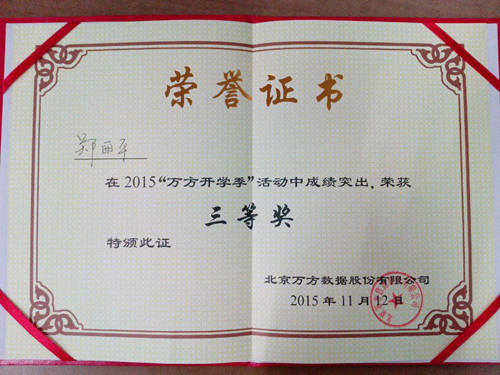 荣誉证书
郑丽平
在2015“万方开学季”活动中成绩突出，荣获
三等奖
特颁此证
北京万方数据股份有限公司
2015年11月12日